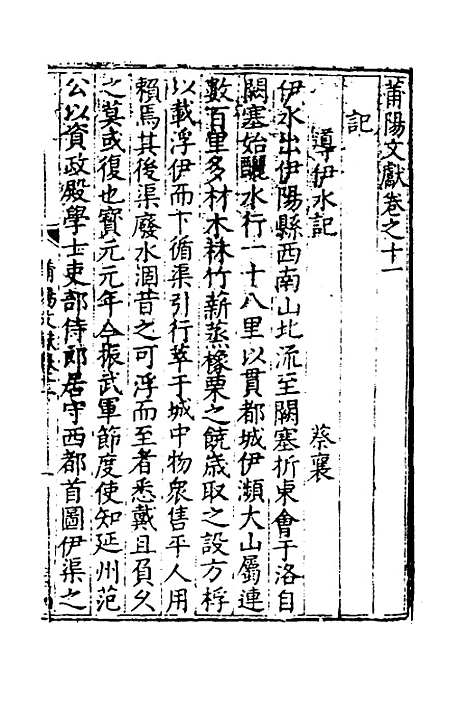 莆陽文獻卷之十一
記
導伊水記 蔡襄
伊水出伊陽縣西南山北流至闕塞折東會于洛自
闕塞始釃水行一十八里以貫都城伊瀕大山屬連
數百里多材木林竹薪蒸橡栗之饒歲取之設方桴
以載浮伊而下循渠引行萃于城中物衆售平人用
賴焉其後渠廢水涸昔之可浮而至者悉戴且負久
之莫或復也寶元元年今振武軍節度使知延州范
公以資政殿學士吏部侍郎居守西都首圖伊渠之
莆陽文獻卷十一